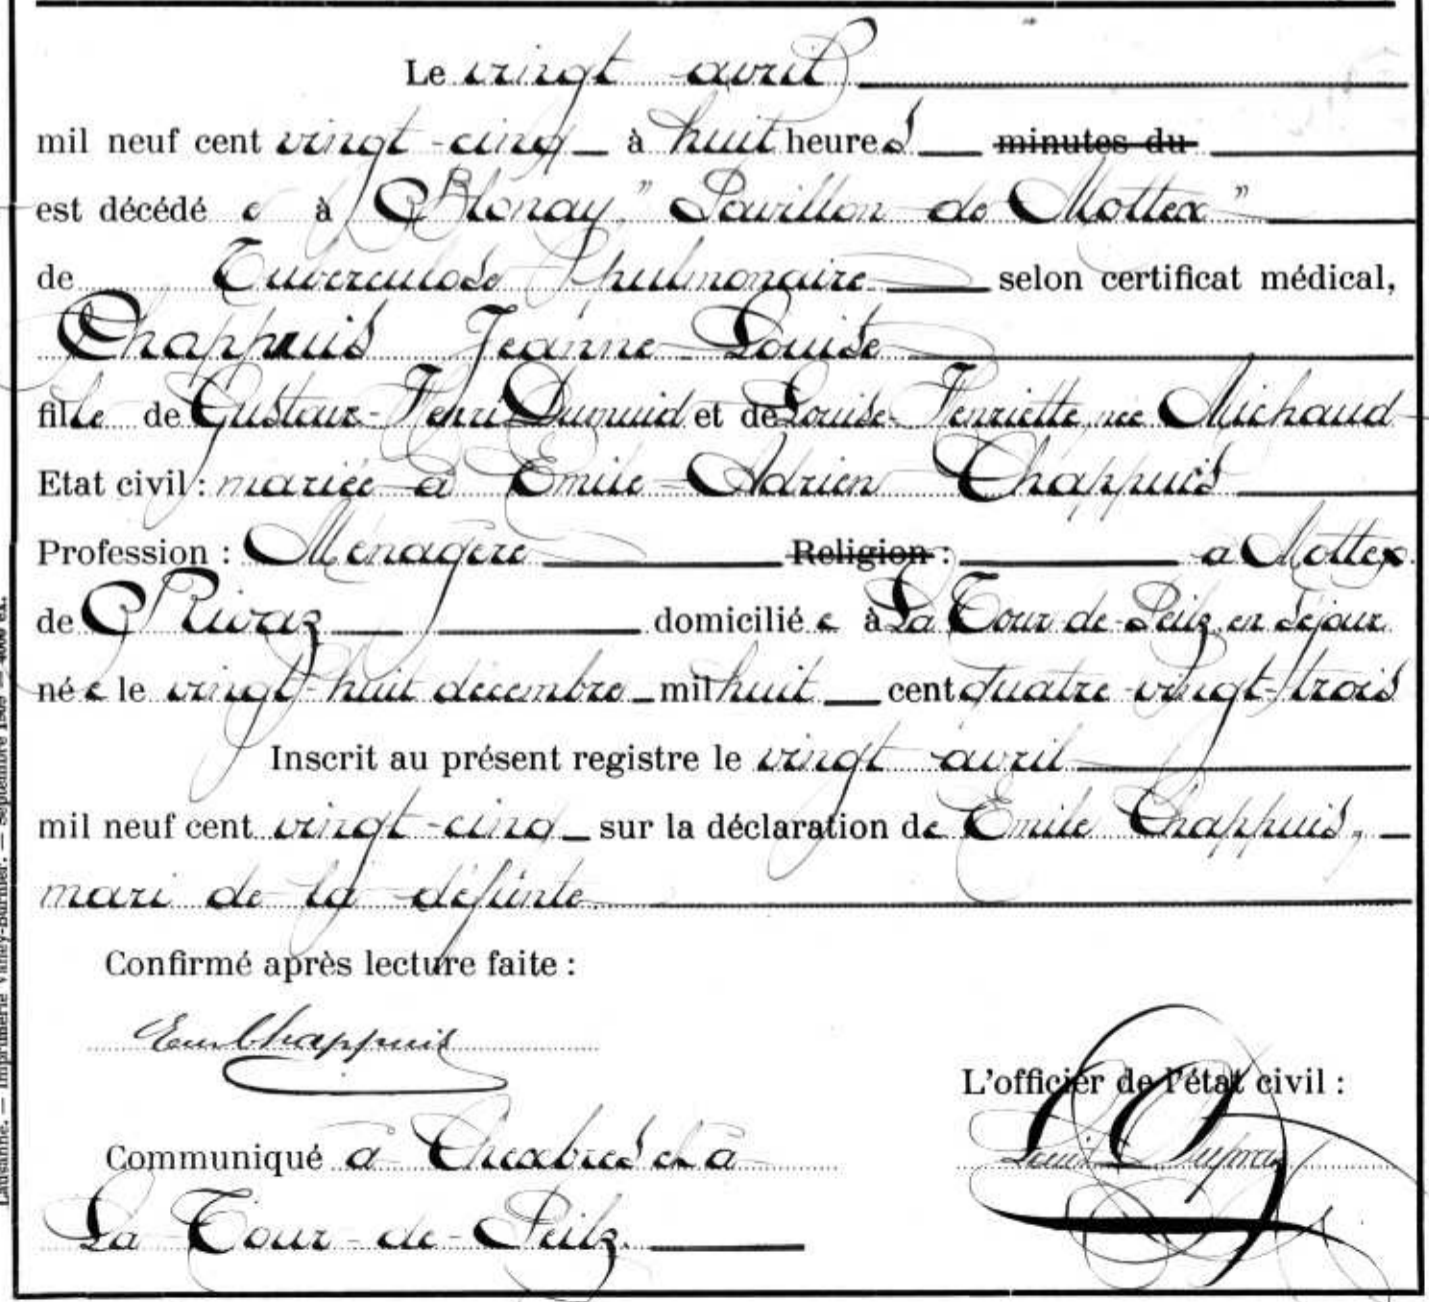 Le vingt avril
mil neuf cent vingt-cinq à huit heures minutes du
est décédée à Blonay, "Pavillon de Mottex"
de Tuberculose pulmonaire selon certificat médical,
Chappuis Jeanne-Louise
fille de Gustave-Henri Dumuid et de Louise-Henriette née Michaud
Etat civil : mariée à Emile-Adrien Chappuis
Profession : Ménagère Religion : à Mottex.
de Rivaz domiciliée à La Tour-de-Peilz, en séjour
née le vingt-huit décembre mil huit cent quatre-vingt-trois
Inscrit au présent registre le vingt avril
mil neuf cent vingt-cinq sur la déclaration de Emile Chappuis,
mari de la défunte.
Confirmé après lecture faite :
Em Chappuis
L'officier de l'état civil :
Communiqué à Chexbres et à
Louis Dupraz
La Tour-de-Peilz.
Lausanne. — Imprimerie Vaney-Burnier. — Septembre 1909 — 4000 ex.